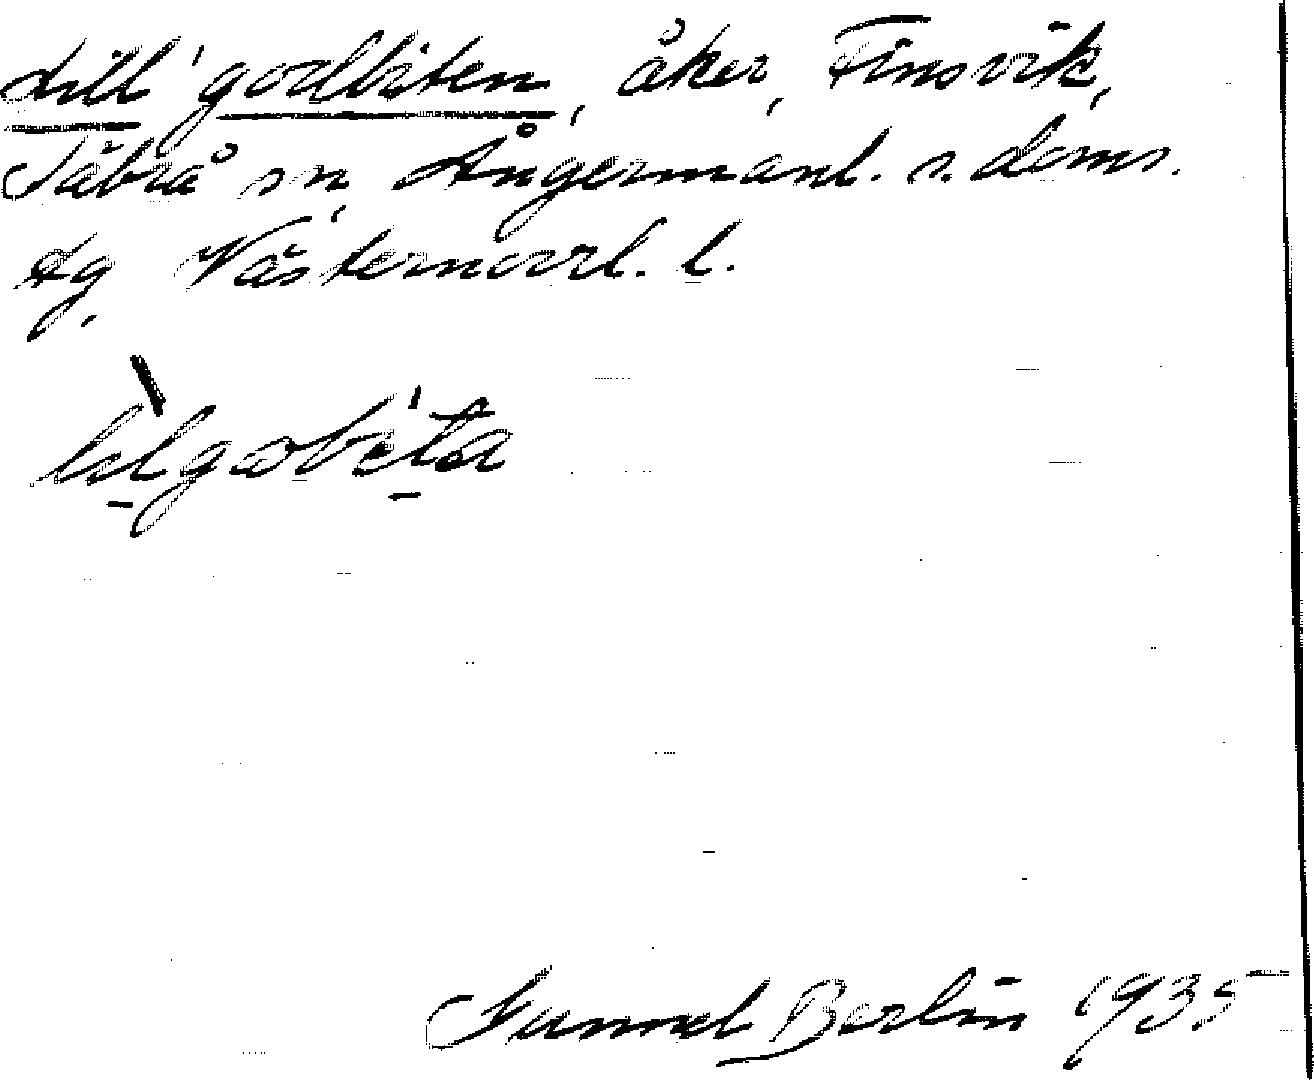 Lill'godbiten, åker, Finsvik,
Säbrå sn, Ångermanl. s. doms.
dg, Västernorrl. l.
lìlgobíta
Gunnel Berlin 1935